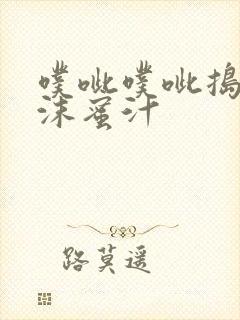 噗呲噗呲捣
沫蜜汁
路莫遥